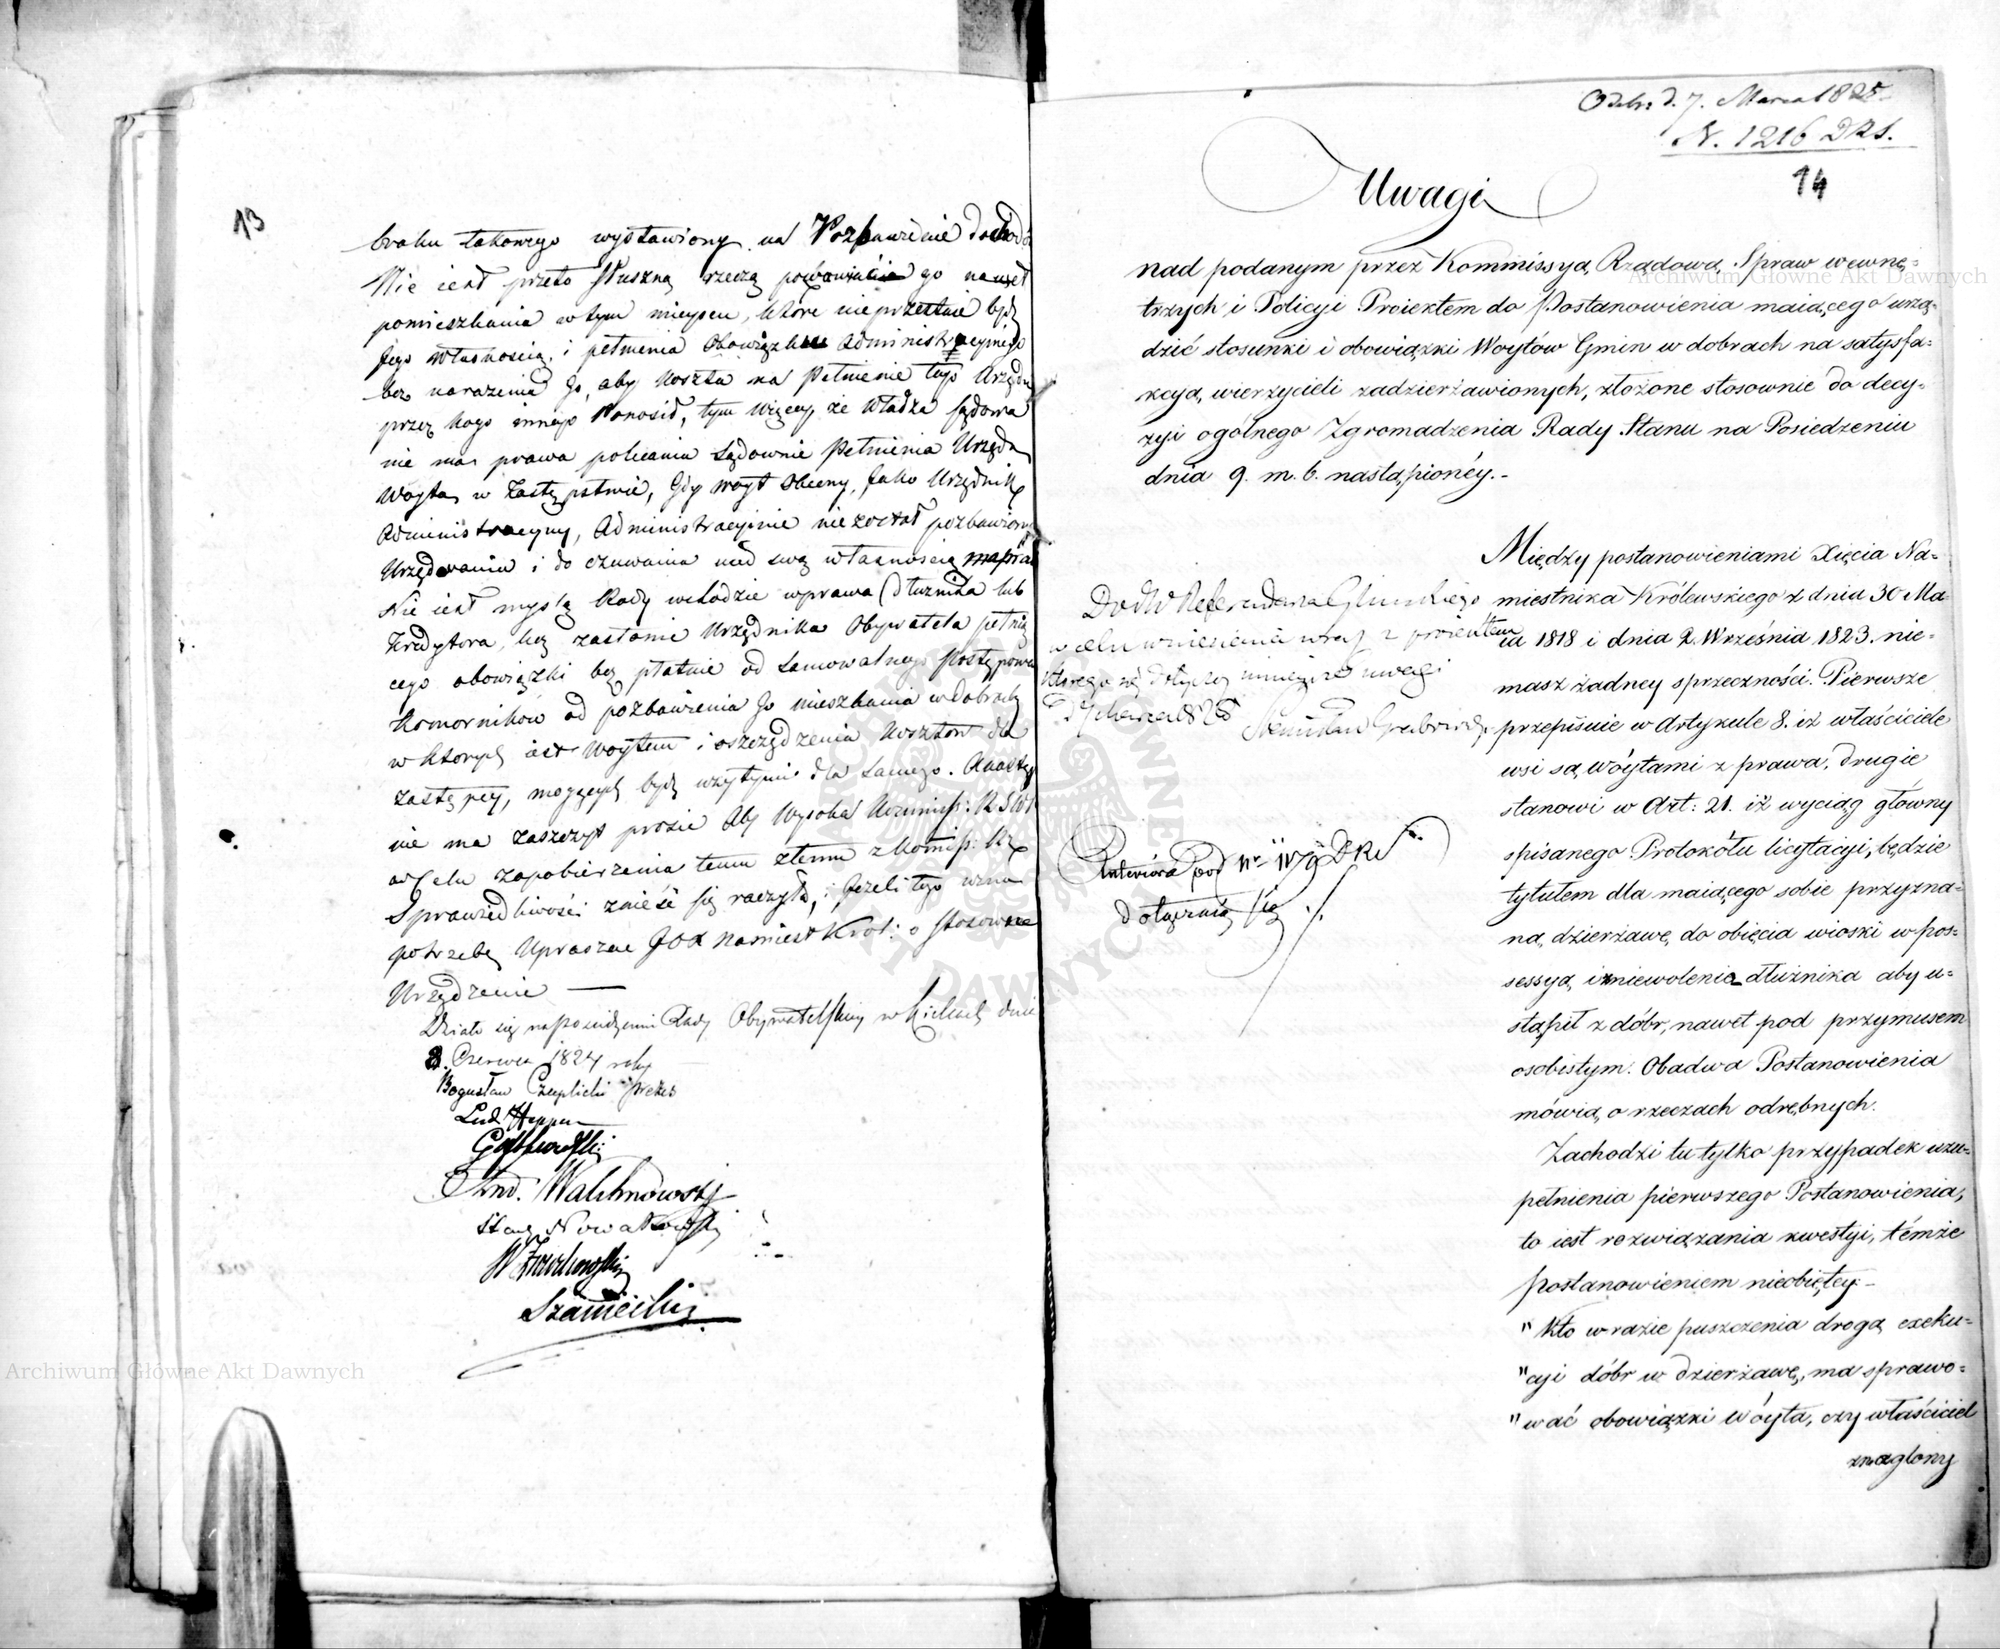 13
braku takowego wystawiony na Pozbawienie dochodu
Nie iest przeto słuszną rzeczą pozbawiać go nawet
pomieszkania w tym mieyscu, które nieprzestaie być
Jego własnością, i pełnienia Obowiązków Administracyinego
bez narażenia Go, aby koszta na Pełnienie tego Urzędu
przez kogo innego Ponosił, tym więcey że Władza Sądowa
nie ma prawa polecania Sądownie Pełnienia Urzędu
Woyta w Zastępstwie, Gdy woyt Obecny, Jako Urzędnik
Administracyiny, Administracyinie niezostał pozbawiony
Urzędowania i do czuwania nad swą własnością
Nie iest myślą Rady wchodzić wprawa Dłużnika lub
Kredytora, lecz zasłonić Urzędnika Obywatela pełnią
cego obowiązki bez płatnie od Samowolnego Postępowa
Komorników od pozbawienia Go mieszkania w dobrach
w których iest Woytem i oszczędzenia Kosztów dla
Zastępcy, mogących być użytymi dla Samego.
nie ma zaszczyt prosić Aby Wysoka Kommiss: R S W
w Celu zapobieżenia temu złemu z Komiss:
Sprawiedliwości znieść się raczyła, i Jeżeli tego uzna
potrzebę Upraszać JOX Namiest Krol: o Stosowne
Urządzenie —
Działo się na Posiedzeniu Rady Obywatelskiey w Kielcach dnia
8. Czerwca 1824 roku
Bogusław Czaplicki Prezes
Lud
And. Walchnowski
Stan Nowakowski
Szaniecki
Odebr. d. 7. Marca 1825.
N. 1216 DRS.
14
Uwagi
nad podanym przez Kommissyą Rządową Spraw wewnę-
trznych i Policyi Proiektem do Postanowienia maiącego urzą-
dzić stosunki i obowiązki Woytów Gmin w dobrach na satysfa-
kcyą wierzycieli zadzierżawionych, złożone stosownie do decy-
zyi ogólnego Zgromadzenia Rady Stanu na Posiedzeniu
dnia 9. m. b. nastąpioney.-
Między postanowieniami Xięcia Na-
miestnika Królewskiego z dnia 30 Ma-
ia 1818 i dnia 2. Września 1823. nie-
masz żadney sprzeczności. Pierwsze
przepisuie w Artykule 8. iż właściciele
wsi są Wóytami z prawa, drugie
stanowi w Art: 21. iż wyciąg główny
spisanego Protokółu licytacyi, będzie
tytułem dla maiącego sobie przyzna-
ną dzierżawę, do obięcia wioski w pos-
sessyą i zniewolenia dłużnika aby u-
stąpił z dóbr, nawet pod przymusem
osobistym. Obadwa Postanowienia
mówią o rzeczach odrębnych.
Zachodzi tu tylko przypadek uzu-
pełnienia pierwszego Postanowienia,
to iest rozwiązania kwestyi, témże
postanowieniem nieobiętey:-
"Kto w razie puszczenia drogą exeku-
"cyi dóbr w dzierżawę, ma sprawo-
"wać obowiązki Wóyta, czy właściciel
znaglony
Do JW Referendarza Glinskiego
w celu wniesienia wraz z proiektem
którego się dotyczą ninieysze uwagi
Stanisław Grabowski
Anteriora pod Nr 1179 DRS
dołączaią się ./.
Archiwum Główne Akt Dawnych
Archiwum Główne Akt Dawnych
ARCHIWUM GŁÓWNE AKT DAWNYCH